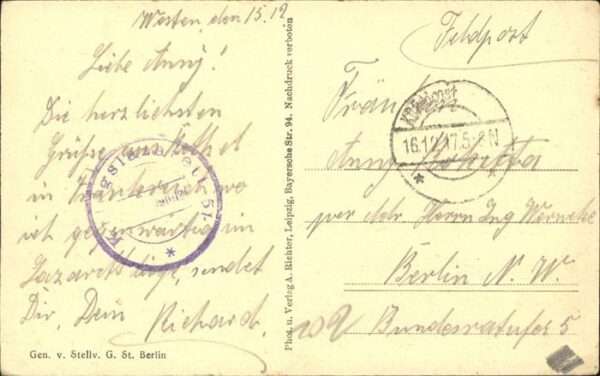 Westen, den 15.12
Liebe Anny!
Die herzlichsten
Grüsse aus Rethel
in Frankreich wo
ich gegenwärtig im
Lazarett liege, sendet
Dir, Dein Richard.
Gen. v. Stellv. G. St. Berlin
Phot. u. Verlag A. Richter, Leipzig, Bayersche Str. 94. Nachdruck verboten
Feldpost
16.12.17.5-6N
Fräulein
Anny
per Adr. Herrn Ing Wernecke
Berlin N. W.
Bundesratufer 5